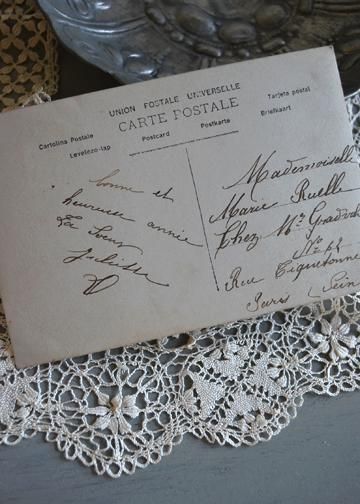 UNION POSTALE UNIVERSELLE
CARTE POSTALE
Cartolina Postale Postcard Postkarte Tarjeta postal
Levelezo-lap Briefkaart
bonne et
heureuse année
Ta Soeur
Juliette
Mademoiselle
Marie Ruelle
Chez Mr
No 44
Rue Tiquetonne
Paris (Sein